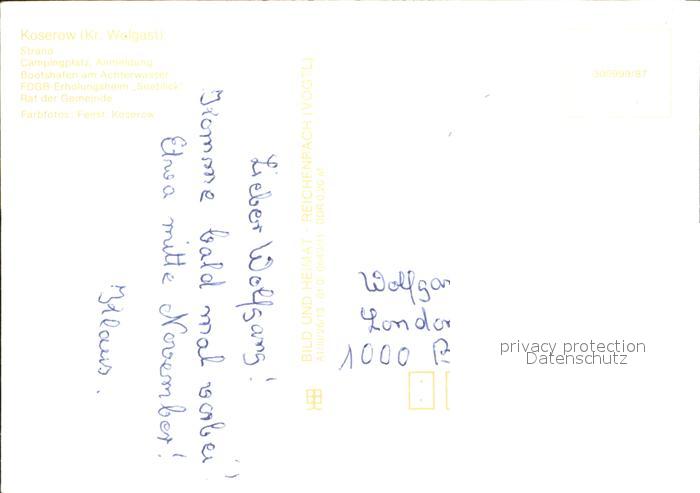 Koserow (Kr. Wolgast):
Strand
Campingplatz, Anmeldung
Bootshafen am Achterwasser
FDGB-Erholungsheim „Seeblick“
Rat der Gemeinde
Farbfotos: Feist, Koserow
Lieber Wolfgang!
Komme bald mal vorbei!
Etwa mitte November!
Klaus.
BILD UND HEIMAT · REICHENBACH (VOGTL)
300999/87
Wolfgan
London
1000
privacy protection
Datenschutz